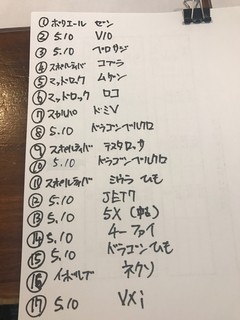 ① ボリエール ゼン
② 5.10 V10
③ 5.10 アロサジ
④ スポルティバ コブラ
⑤ マッドロック ムゲン
⑥ マッドロック ロコ
⑦ スカルパ ドミV
⑧ 5.10 ドラゴンベルクロ
⑨ スポルティバ テスタロッサ
⑩ 5.10 ドラゴンベルクロ
⑪ スポルティバ ミウラ ひも
⑫ 5.10 JET7
⑬ 5.10 5X
⑭ 5.10 チーファイ
⑮ 5.10 ドラゴンひも
⑯ イボルブ ネクソ
⑰ 5.10 VXi